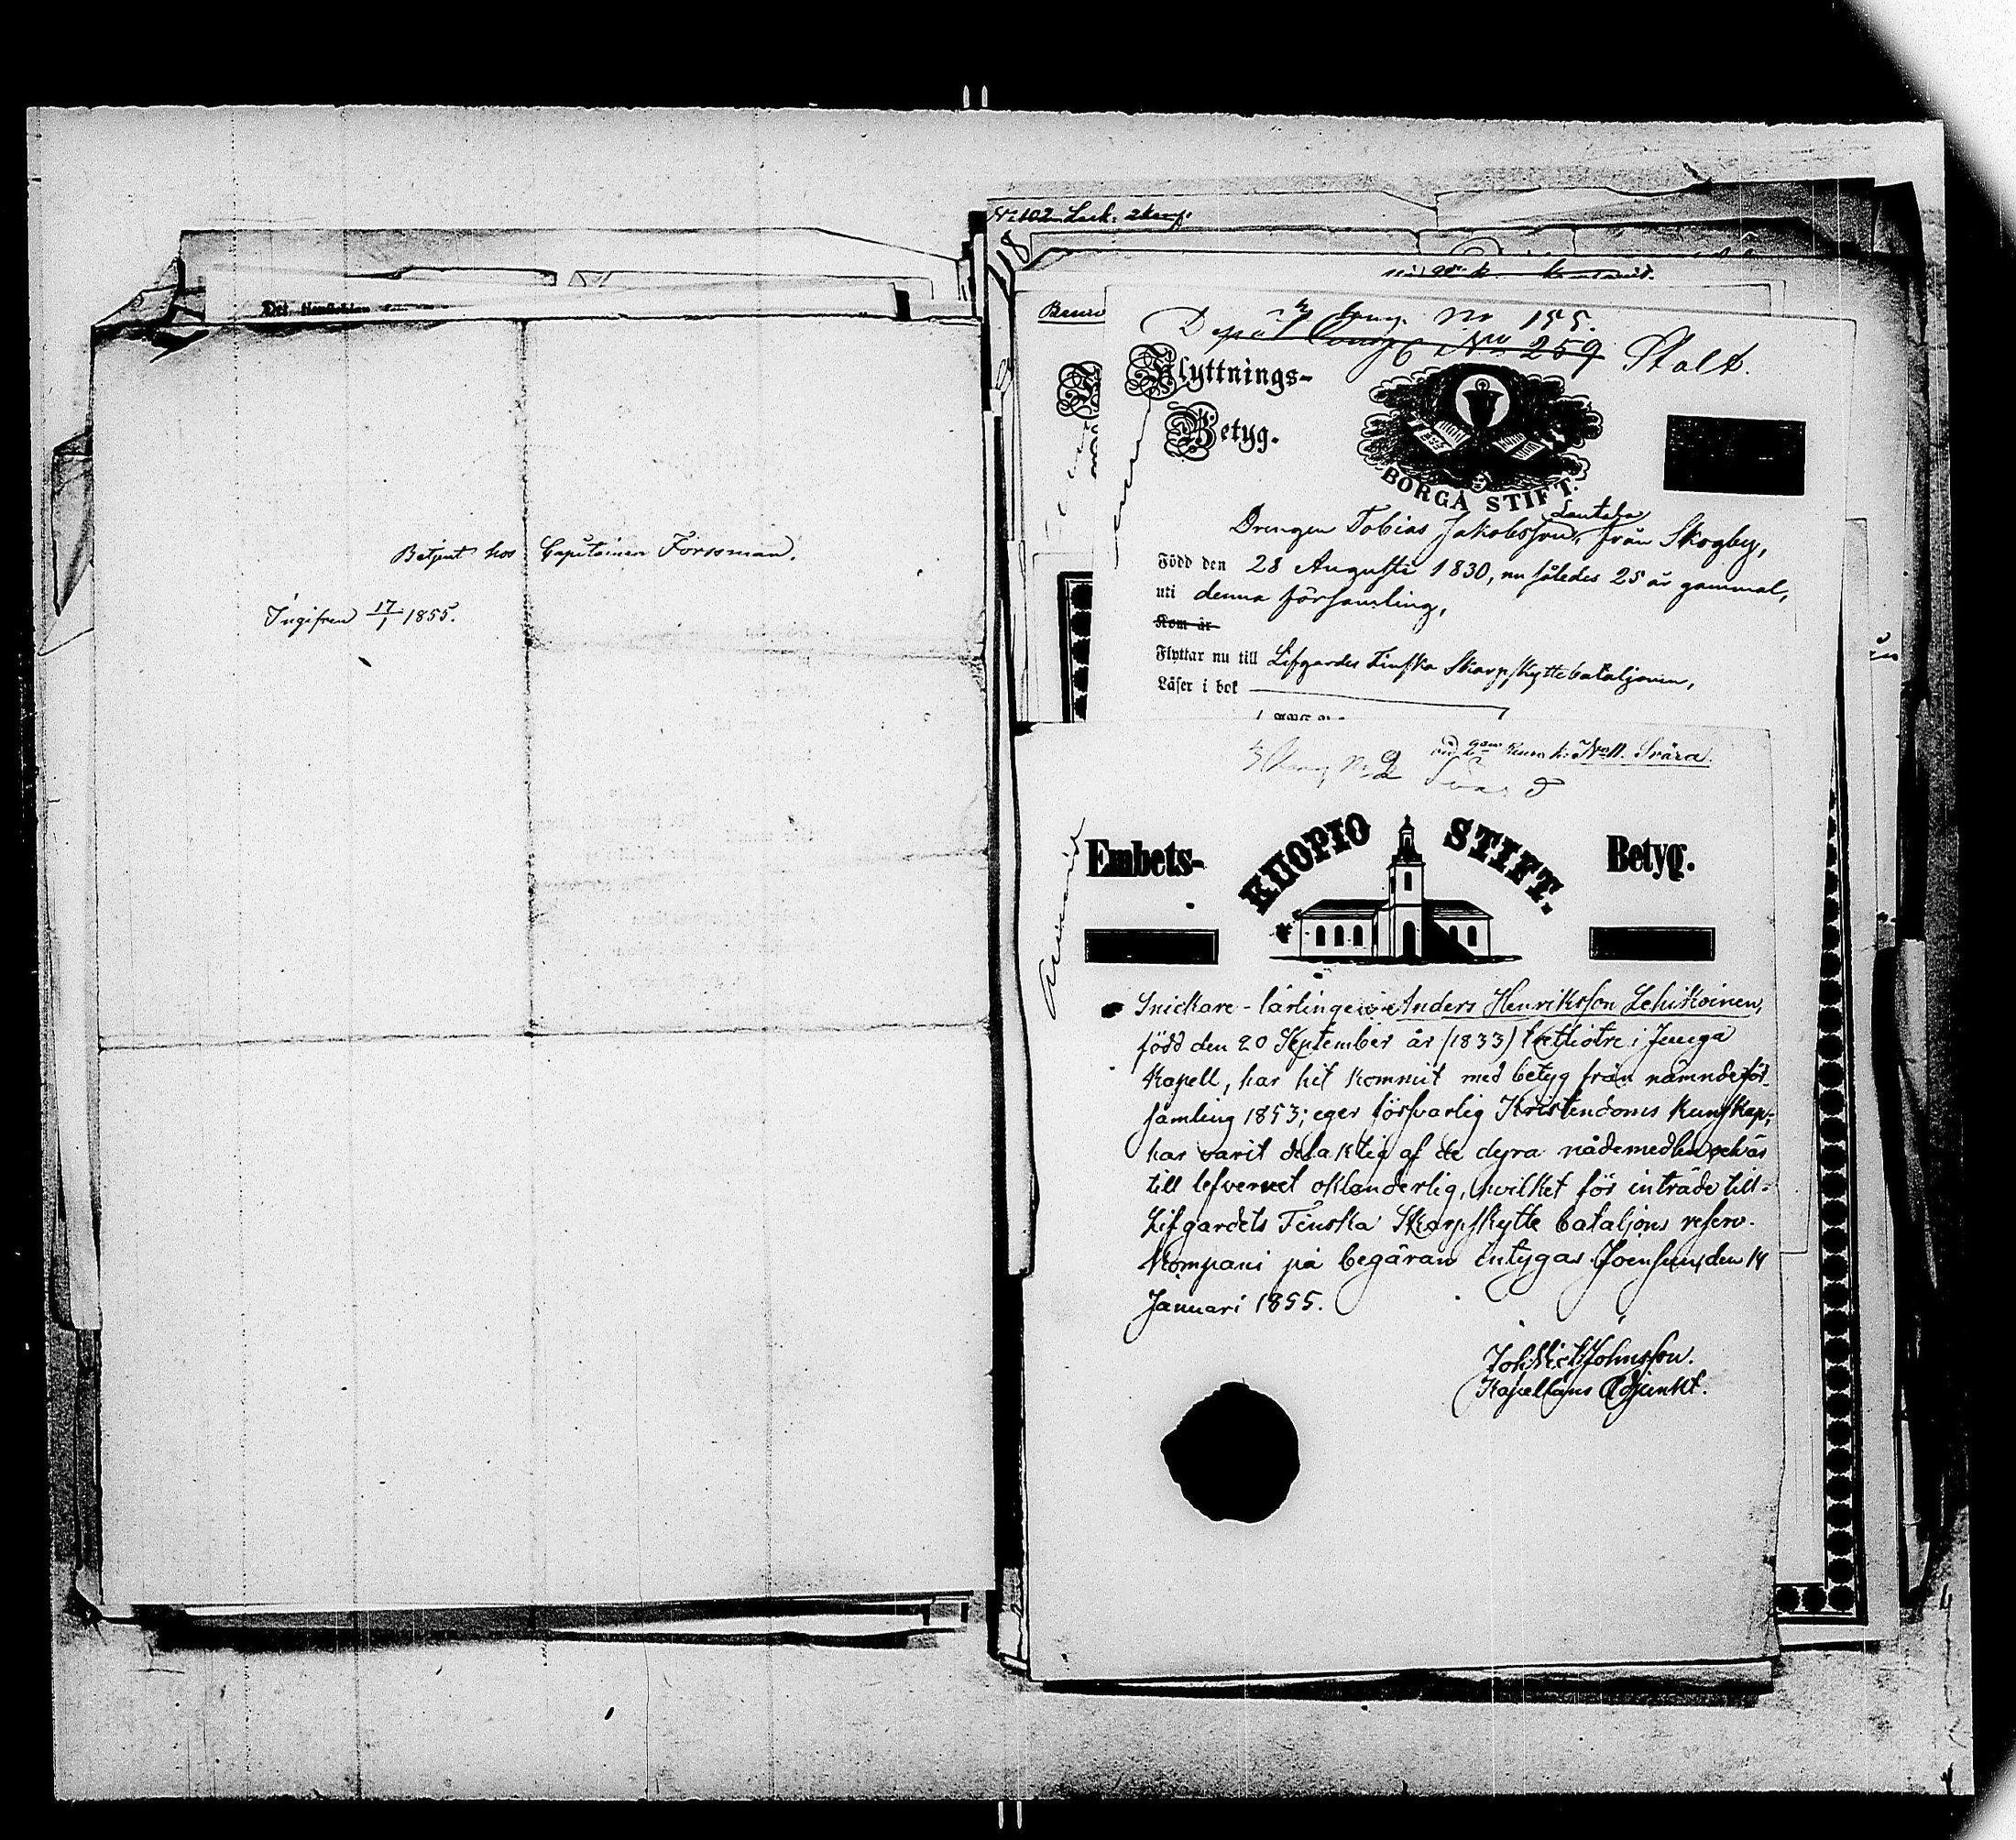 Betjent hos Capitainen Forssman.
Ingifven 17/1 1855.
No 102 Lärk.
Komp. No 155.
Depôt Comp No 259 Stolt.
Flyttnings-
Betyg.
BORGÅ STIFT.
Lautala
Drengen Tobias Jakobsson, från Skogby,
Född den 28 Augusti 1830, nu således 25 år gammal,
uti denna församling,
Kom år
Flyttar nu till Lifgardes Finska Skarpskyttebataljonen,
Läser i bok
No 11. Svärd.
Svärd
Embets-
KUOPIO STIFT.
Betyg.
Snickare-lärlingen Anders Henriksson Lehikoinen,
född den 20 September år (1833) i Juuga
Kapell, har hit kommit med betyg från nämnde för-
samling 1853; eger försvarlig Kristendoms kunskap,
har varit delaktig af de dyra nådemedlen och är
till lefvernet oklanderlig, hvilket för inträde till
Lifgardets Finska Skarpskytte bataljons reserv-
kompani på begäran intygas. Joensuu, den 14
Januari 1855.
Joh. Mich. Johnsson.
Kapellans Adjunkt.